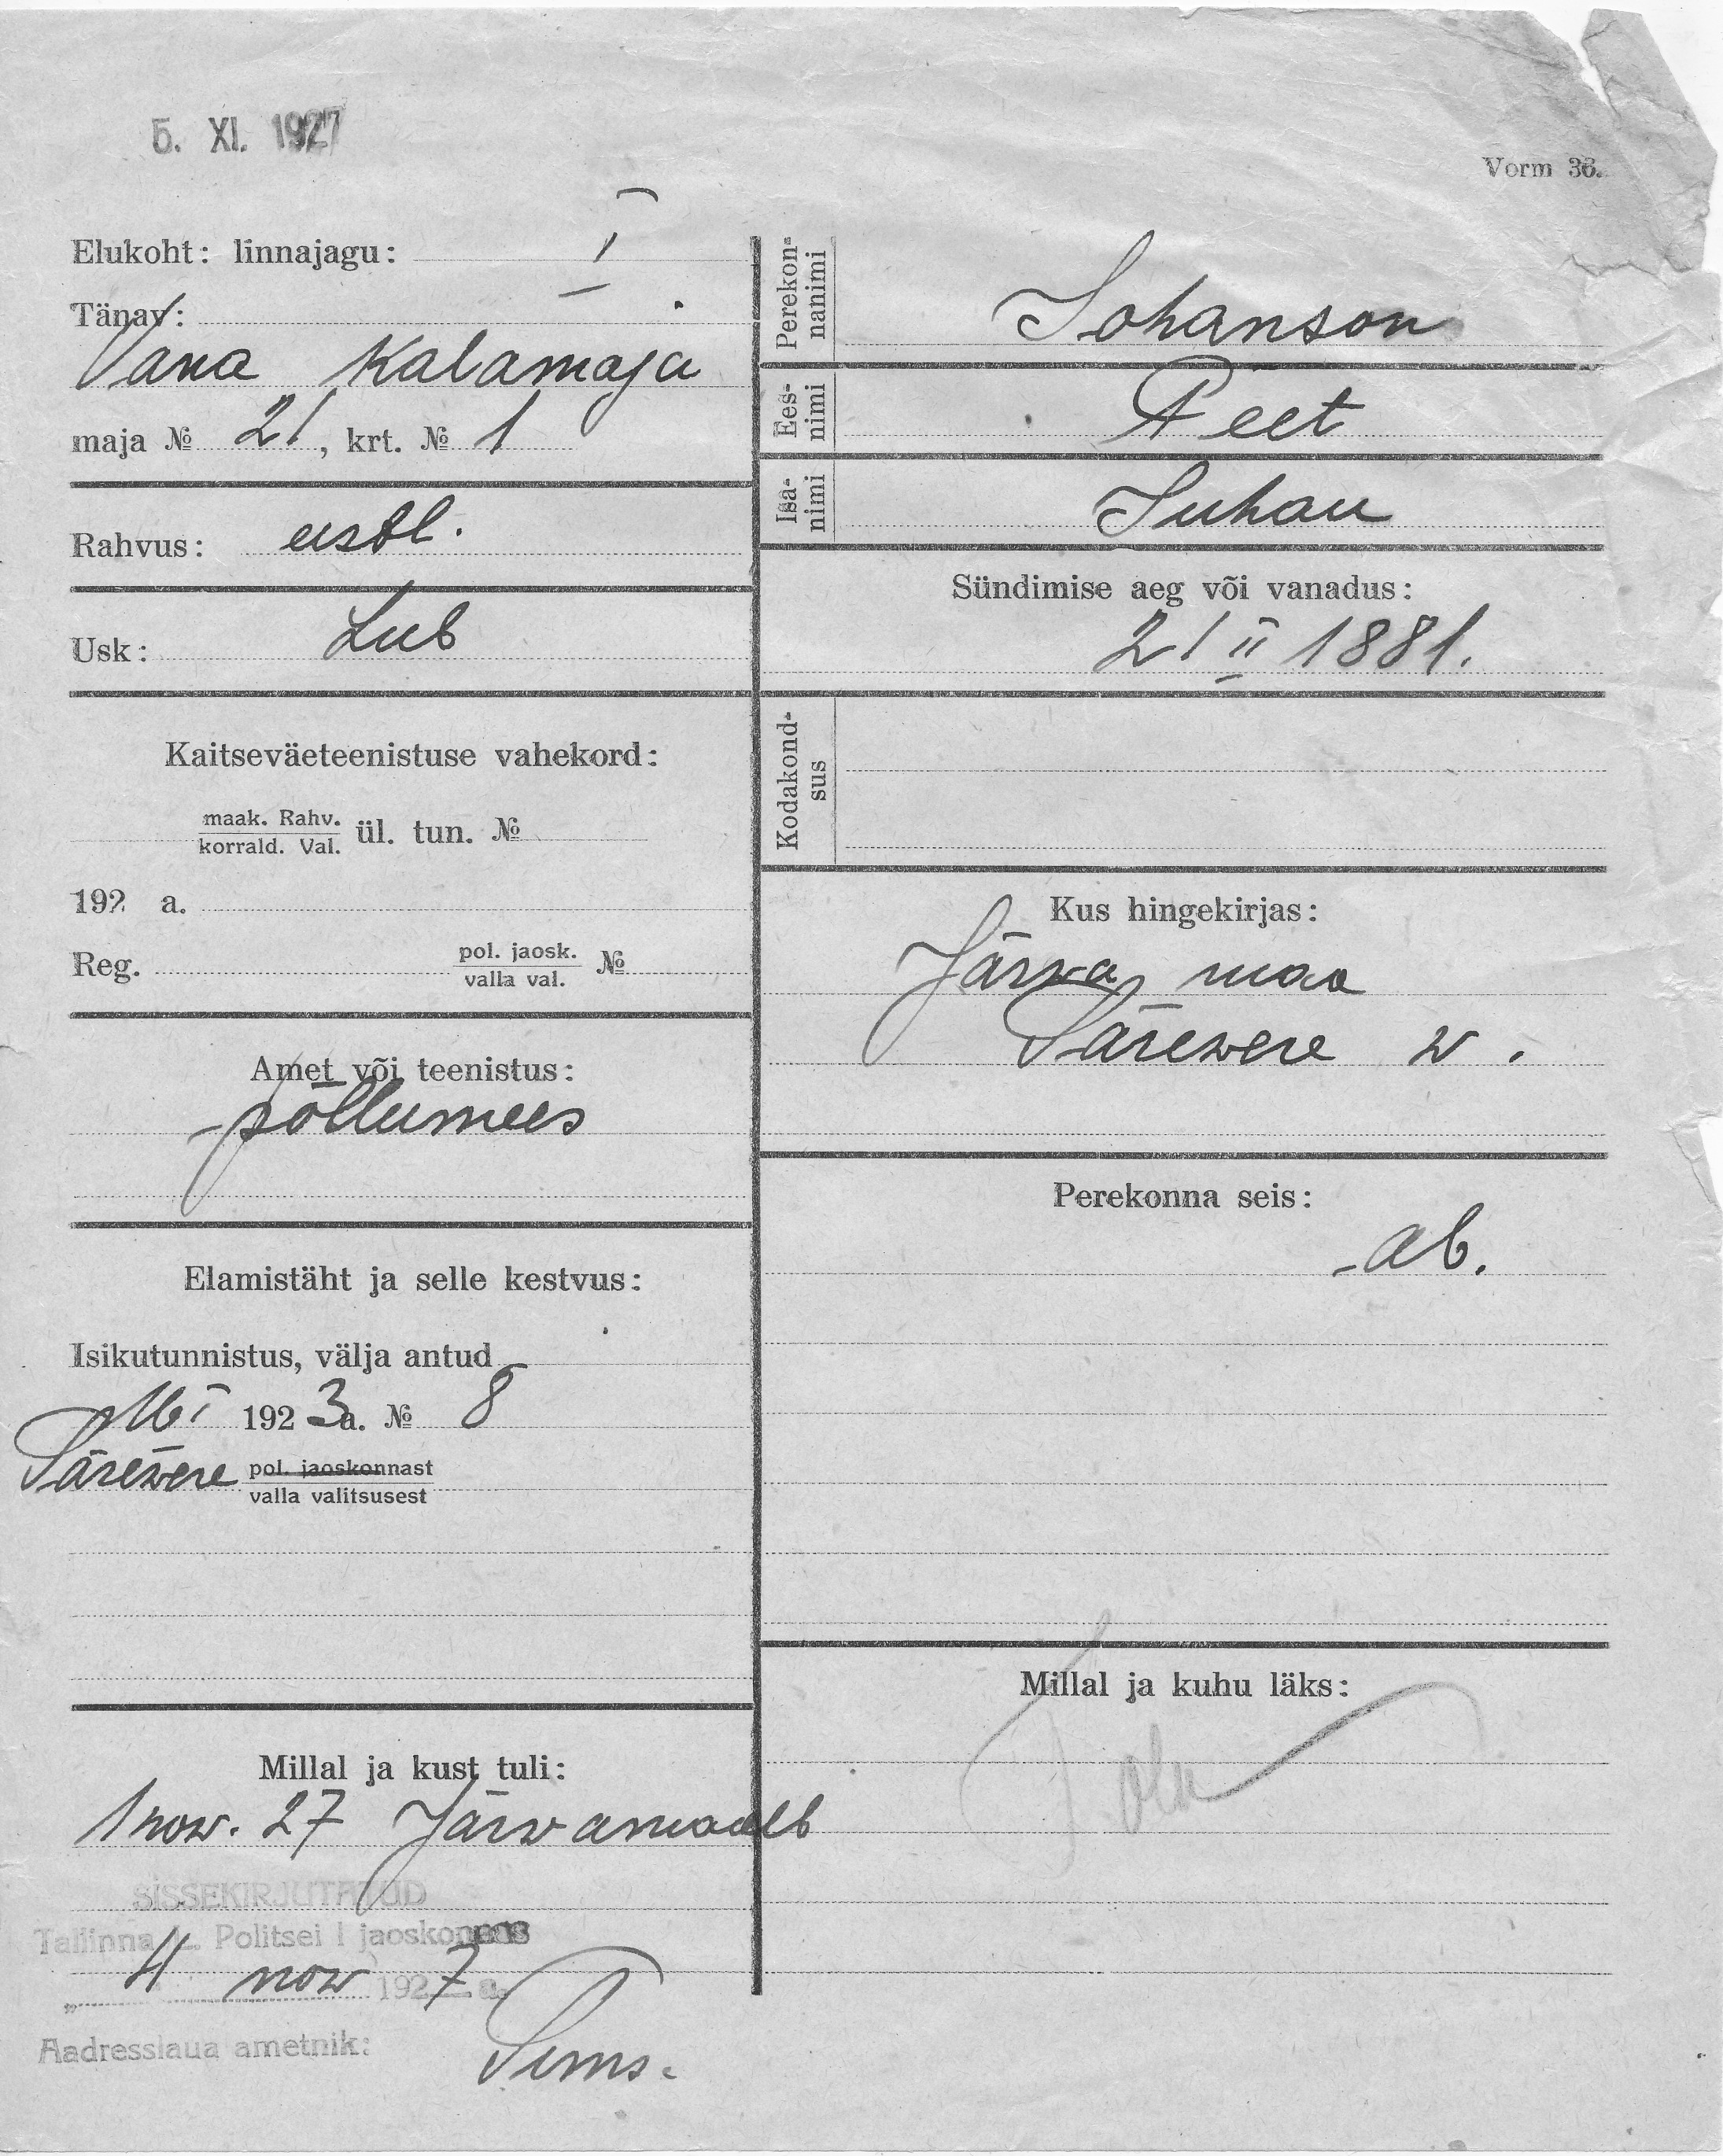 5. XI. 1927
Vorm 36.
Elukoht: linnajagu: I
Tänav:
Vana Kalamaja
maja № 21, krt. № 1
Rahvus: eestl.
Usk: Lut
Kaitseväeteenistuse vahekord:
maak. Rahv.
korrald. Val. ül. tun. №
192 a.
Reg. pol. jaosk.
valla val. №
Amet või teenistus:
põllumees
Elamistäht ja selle kestvus:
Isikutunnistus, välja antud
16 I 1923 a. № 8
Särewere pol. jaoskonnast
valla valitsusest
Millal ja kust tuli:
1 now. 27 Järwamaalt
SISSEKIRJUTATUD
Tallinna L. Politsei I jaoskonnas
„ 4 now 1927 a.
Aadresslaua ametnik:
Perekon-
nanimi
Johanson
Ees-
nimi
Peet
Isa-
nimi
Juhan
Sündimise aeg või vanadus:
21 II 1881.
Kodakond-
sus
Kus hingekirjas:
Järwa maa
Särewere w.
Perekonna seis:
ab.
Millal ja kuhu läks: